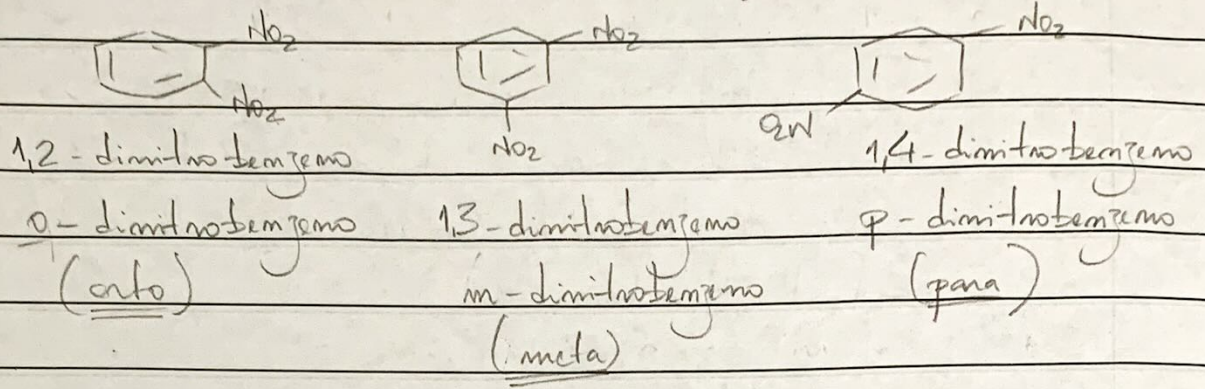 NO2
NO2
NO2
NO2
NO2
O2N
1,2 - dinitrobenzeno
o - dinitrobenzeno
(orto)
1,3 - dinitrobenzeno
m - dinitrobenzeno
(meta)
1,4 - dinitrobenzeno
p - dinitrobenzeno
(para)